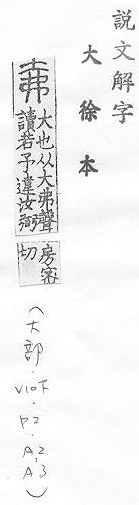 說文解字
大徐本
𡘍 大也从大弗聲
讀若予違汝弼
房密
切
(大部·V10下·P2·A2·A3)